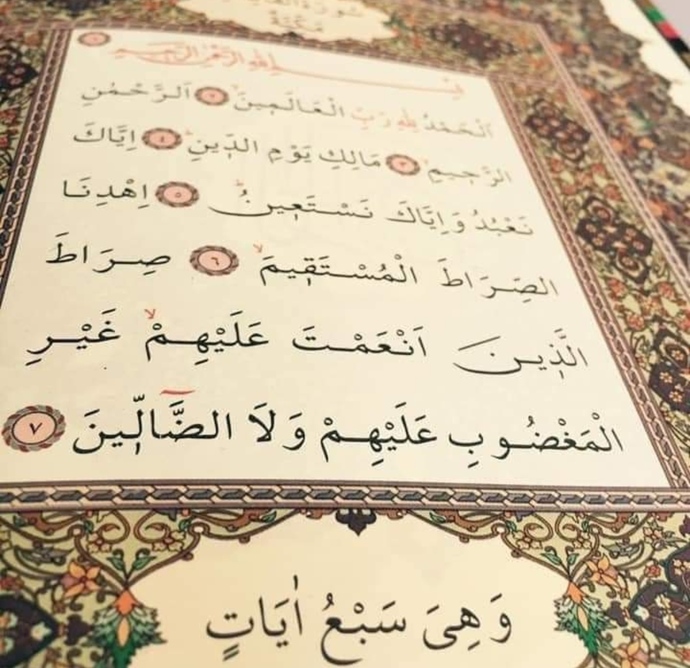 سورة الفاتحة
مكية
بِسْمِ اللهِ الرَّحْمٰنِ الرَّحِيمِ ١
اَلْحَمْدُ لِلهِ رَبِّ الْعَالَمِينَ ٢ اَلرَّحْمٰنِ
الرَّحِيمِ ٣ مَالِكِ يَوْمِ الدِّينِ ٤ اِيَّاكَ
نَعْبُدُ وَاِيَّاكَ نَسْتَعِينُ ٥ اِهْدِنَا
الصِّرَاطَ الْمُسْتَقِيمَ ٦ صِرَاطَ
الَّذِينَ اَنْعَمْتَ عَلَيْهِمْ غَيْرِ
الْمَغْضُوبِ عَلَيْهِمْ وَلَا الضَّالِّينَ ٧
وَهِيَ سَبْعُ اٰيَاتٍ